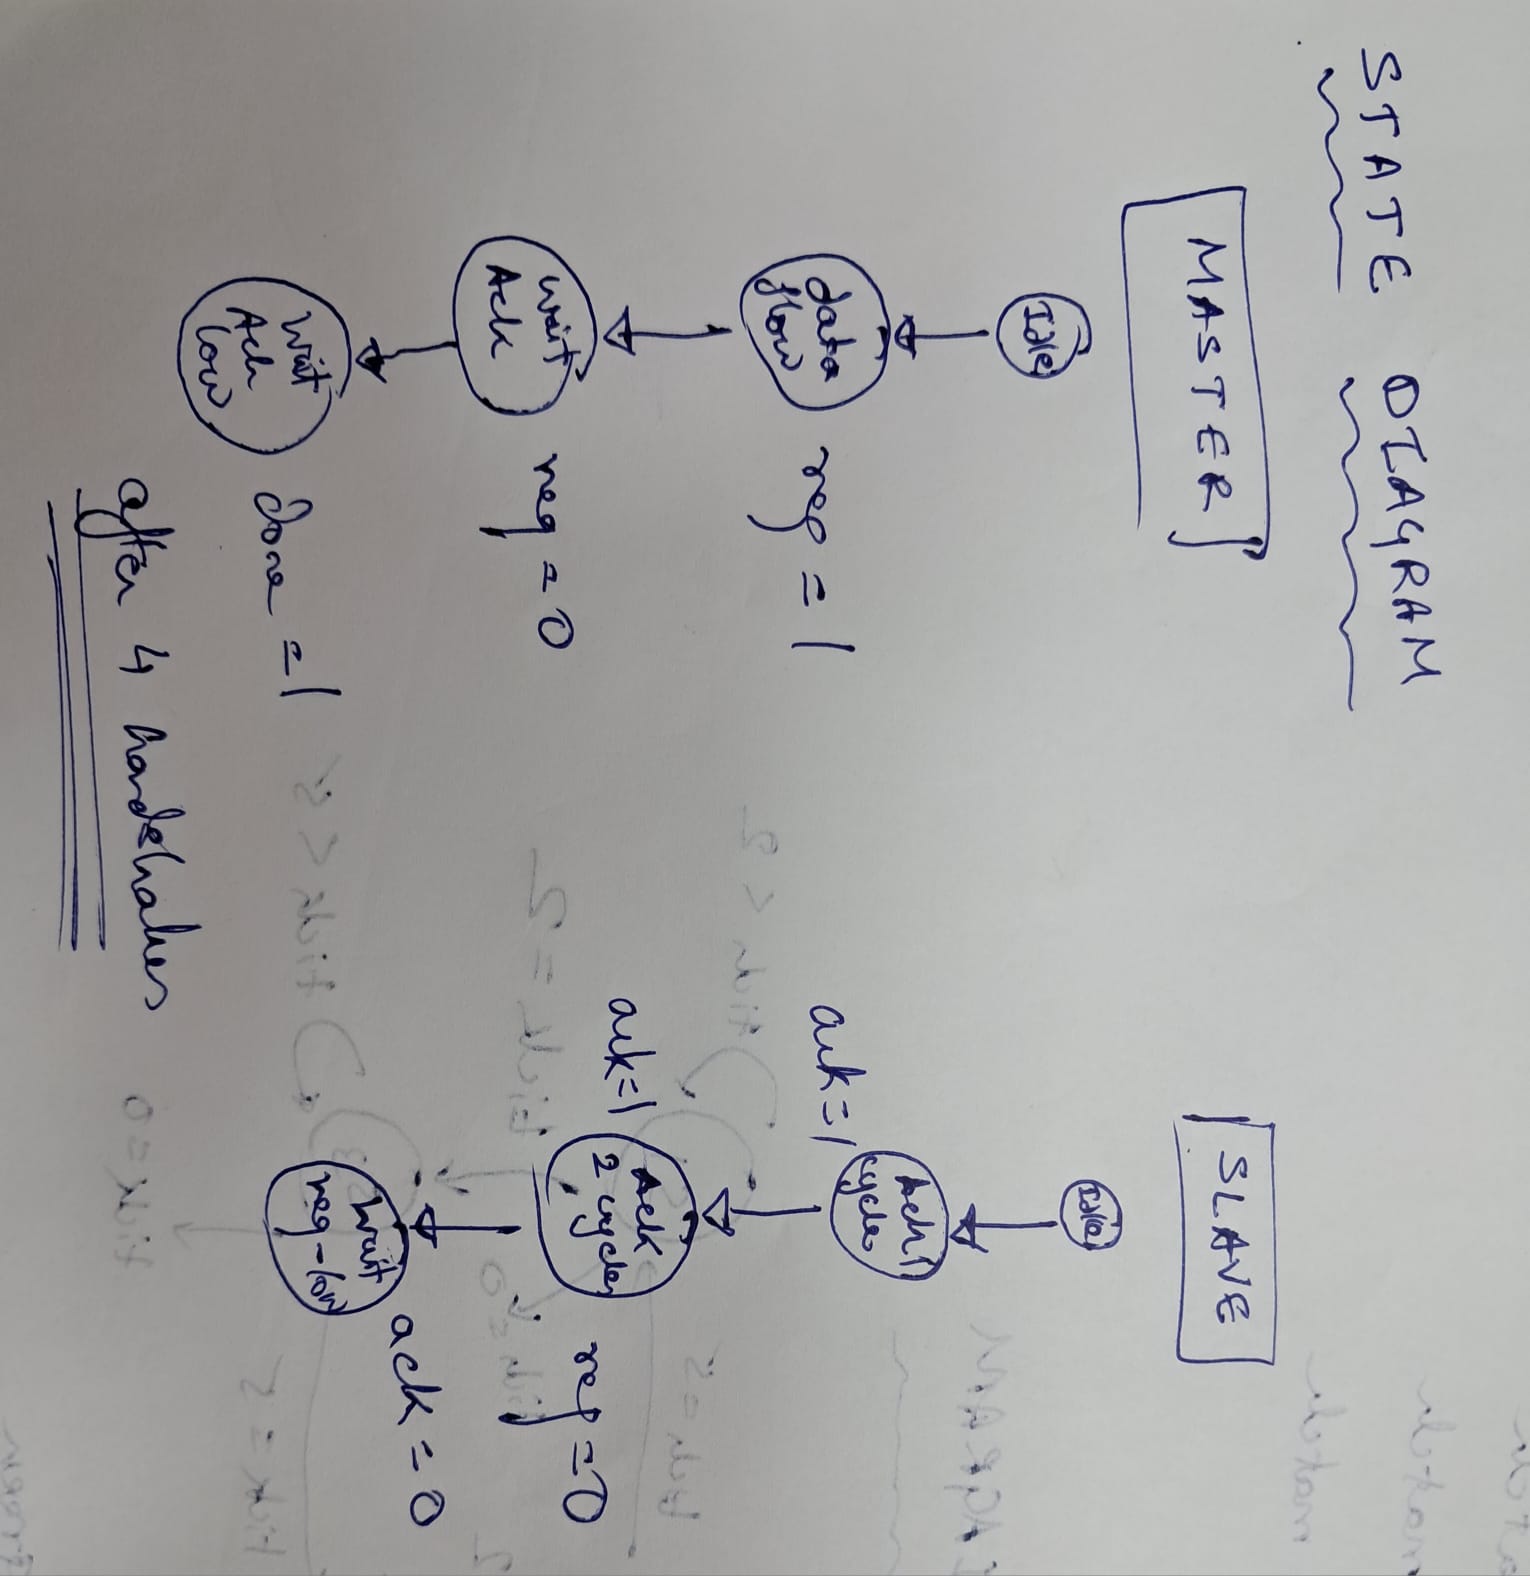 STATE DIAGRAM
MASTER
Idle
data
flow
req = 1
wait
Ack
req = 0
Wait
Ack
low
done = 1
after 4 handshakes
SLAVE
Idle
Ack 1
cycle
ack = 1
Ack
2 cycles
ack = 1
req = 0
Wait
req-low
ack = 0